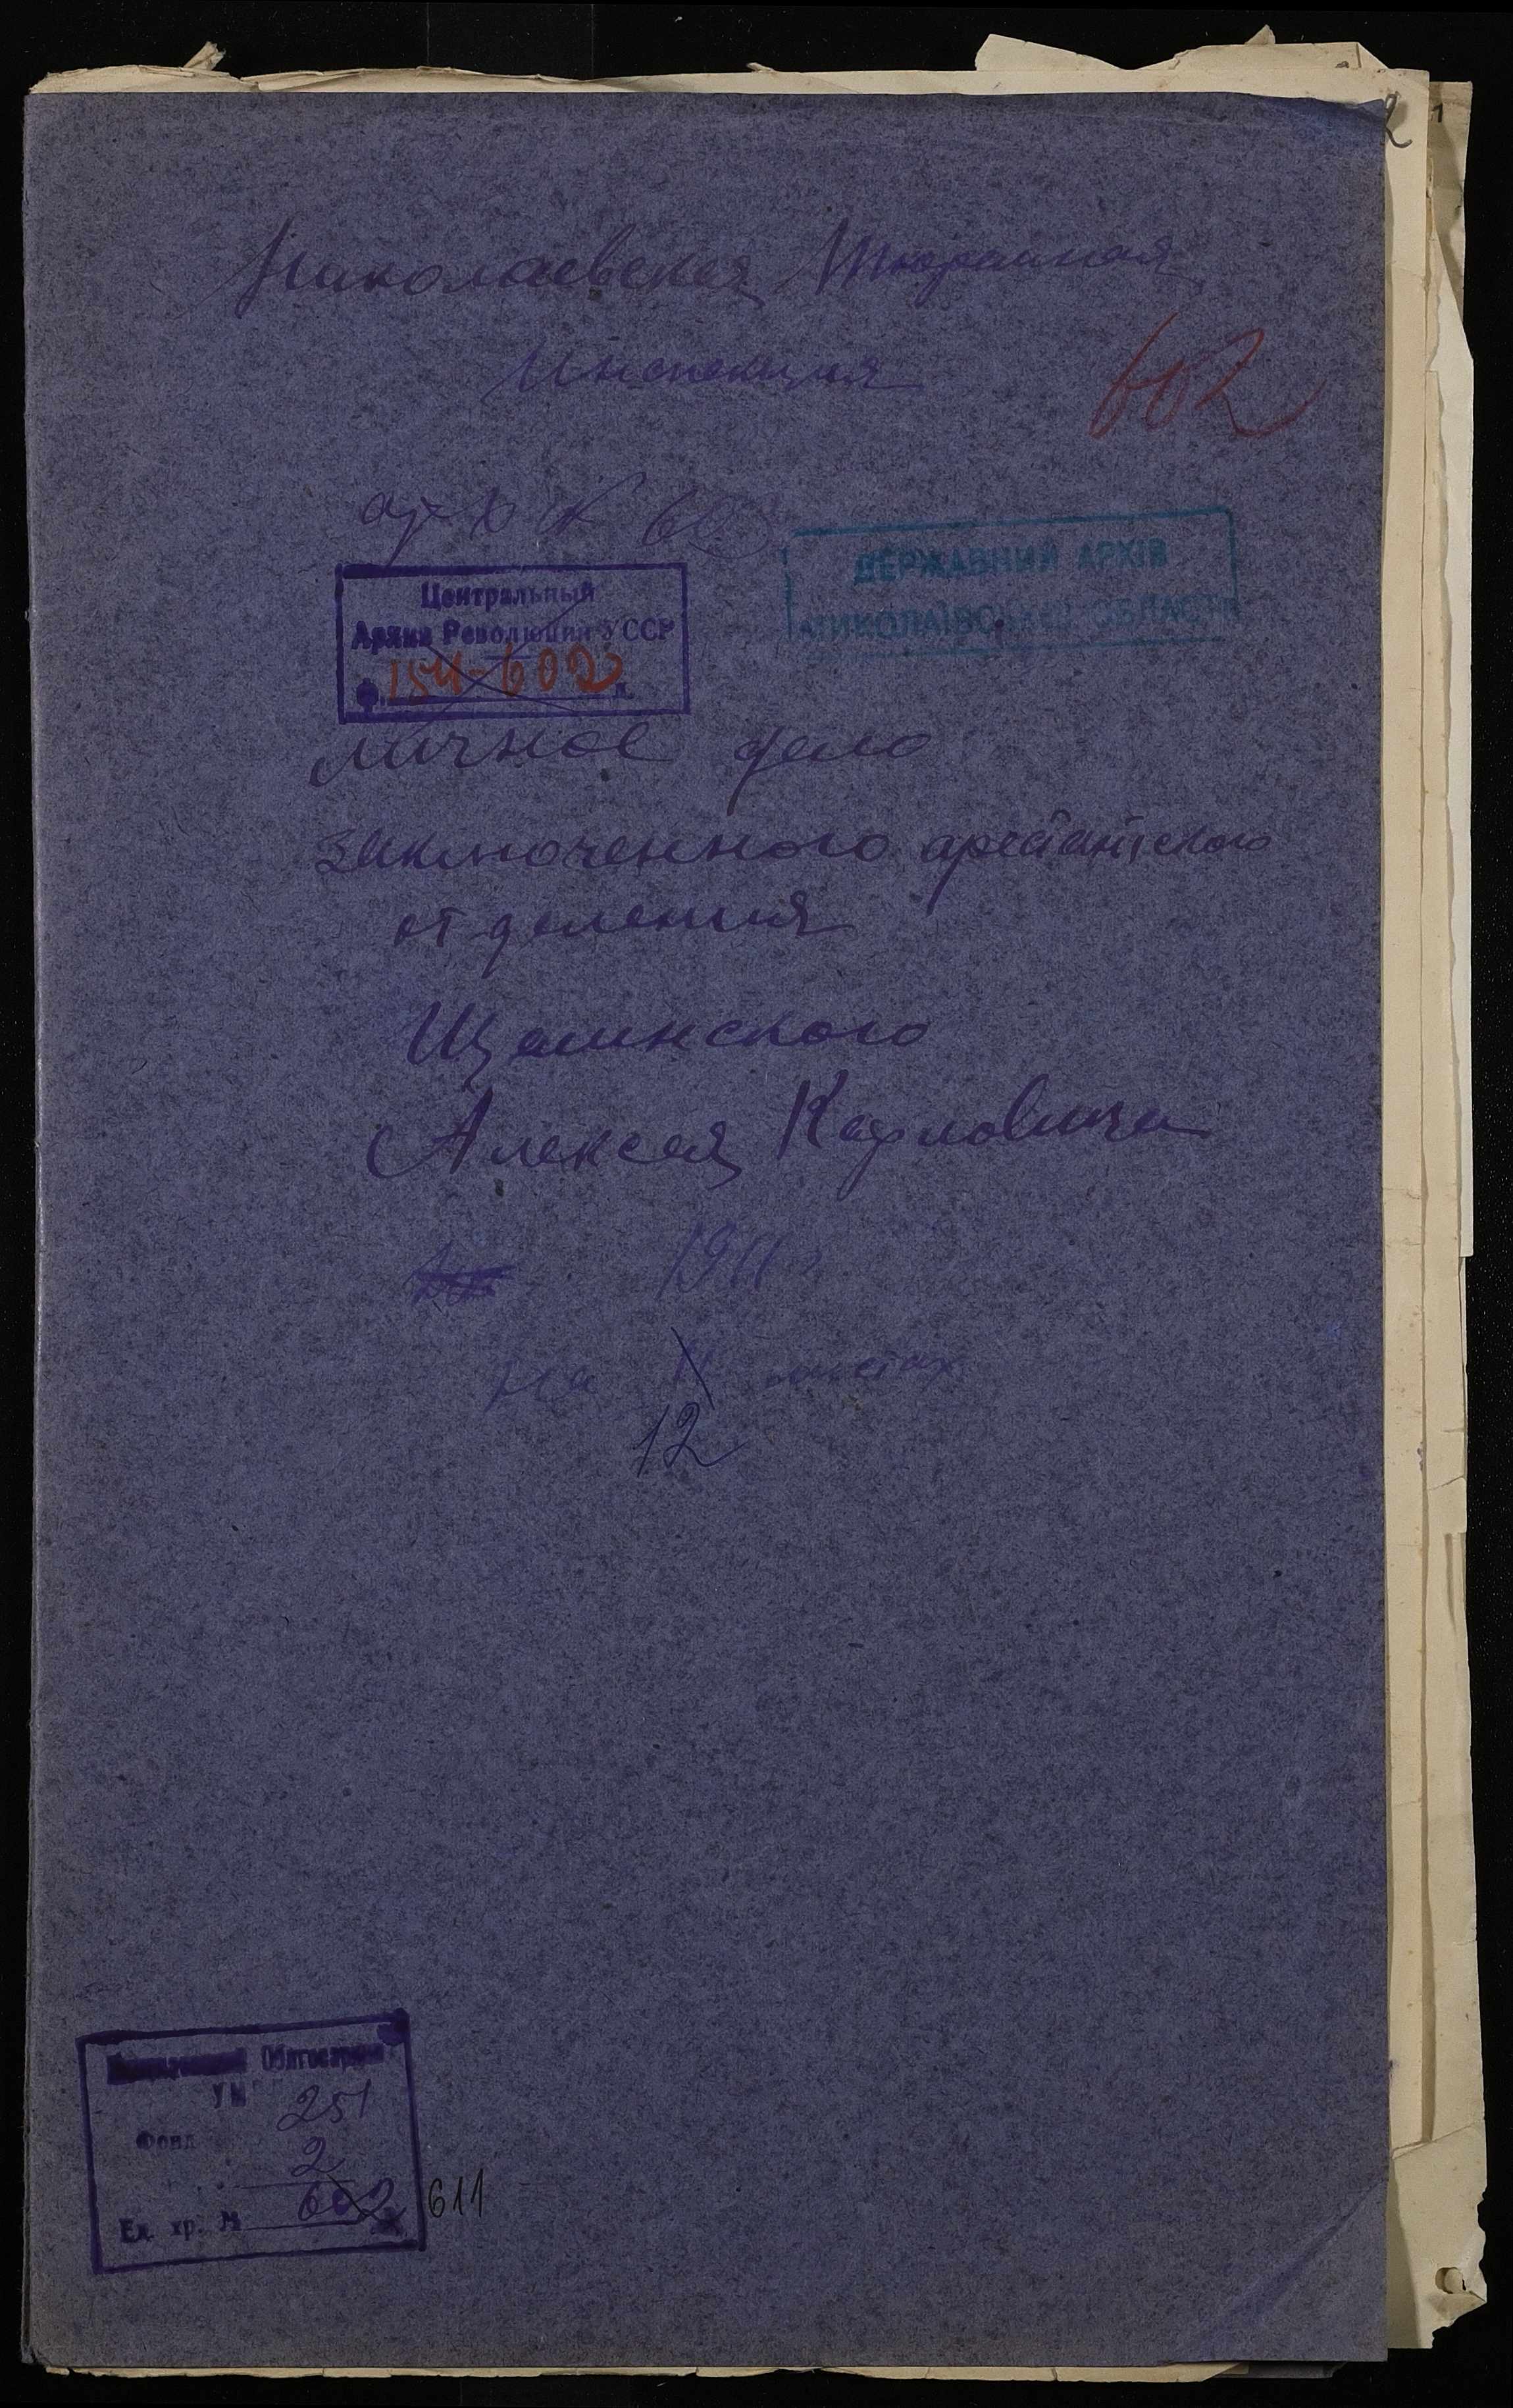 2
1
Николаевская Тюремная
Инспекция
602
арх №
ДЕРЖАВНИЙ АРХІВ
МИКОЛАЇВСЬКОЇ ОБЛАСТІ
Центральный
Архив Революции УССР
Ф. 154-602 д.
личное дело
заключенного арестантского
отделения
Щепинского
Алексея Карловича
1911 г
На 11 листах
12
Облгосархив
251
Фонд
2
Ед. хр. № 602 611